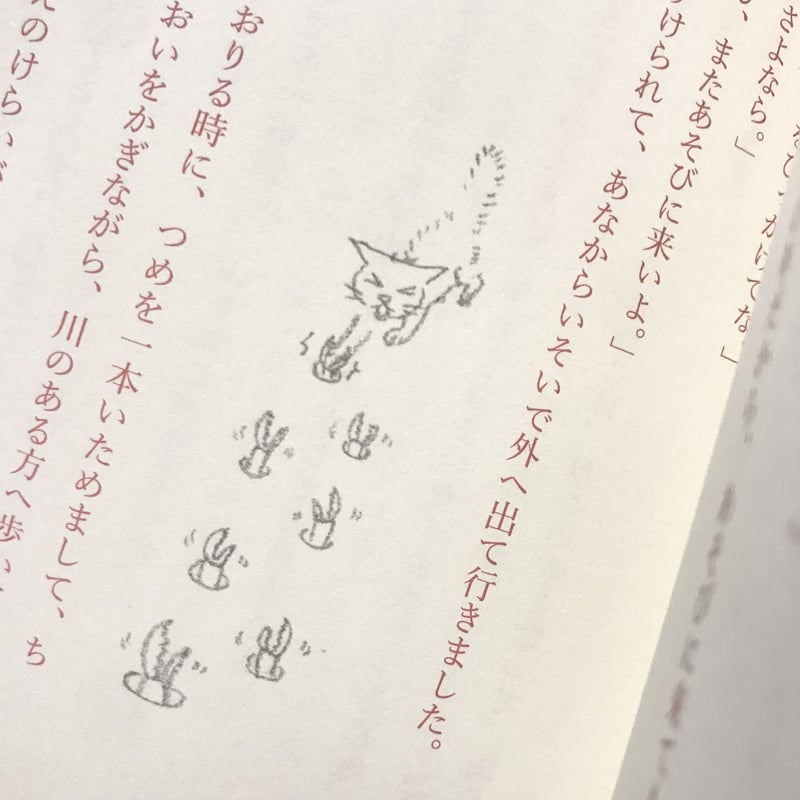 さよなら。」
、またあそびに来いよ。」
けられて、あなからいそいで外へ出て行きました。
おりる時に、つめを一本いためまして、ち
おいをかぎながら、川のある方へ歩い
のけらい